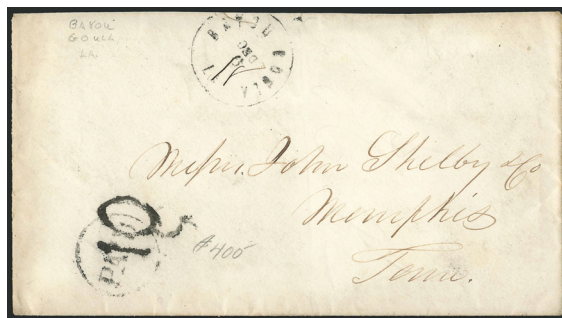 BAYOU
GOULA
LA.
BAYOU GOULA
DEC
Messrs. John Shelby & Co
Memphis
Tenn.
PAID
10
$400